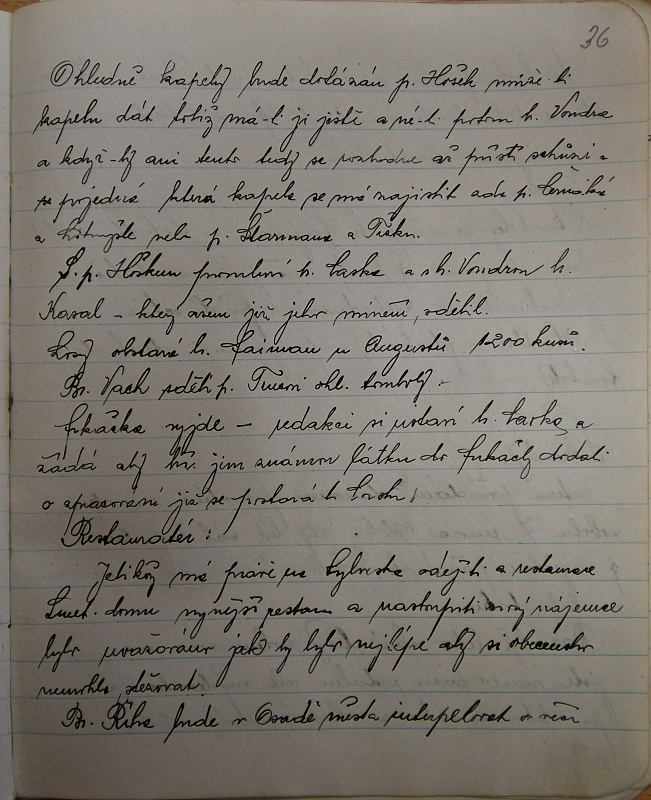 36
Ohledně kapely bude dotázán p. Hošek může-li
kapelu dát totiž má-li ji ještě a né-li potom b. Vondra
a když-by ani tento tedy se rozhodne až příští schůzi -
se pojedná která kapela se má zajistit ada p. Černáka
a nebo p. Štarmana a Tišku.
S. p. Hoškem promluví b. Laska a s b. Vondrou b.
Kaval – který ovšem již jeho mínění sdělil.
Losy obstará b. Laiman u Augustů 1200 kusů.
Br. Vach sdělí p. ohl. tomboly.
Fukačka vyjde – redakci si ustaví b. a
žádá aby bří. jim známou látku do fukačky dodali
o zpracování již se postará b.
Restauratér:
Jelikož má právě na Sylvestra odejíti z restaurace
Smet. domu nynější restaur. a nastoupiti nový nájemce
bylo uvažováno jak by bylo nejlépe aby si obecenstvo
nemohlo stěžovat.
Br. Říha bude v Osadě města interpelovat o věci